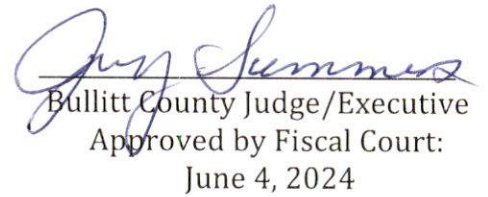 Jerry Summers
Bullitt County Judge/Executive
Approved by Fiscal Court:
June 4, 2024